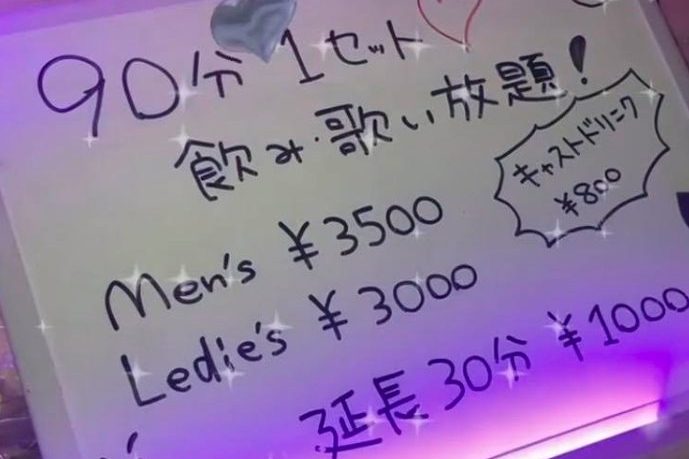 90分 1セット
飲み・歌い放題!
キャストドリンク
¥800
Men's ¥3500
Ledie's ¥3000
延長30分 ¥1000